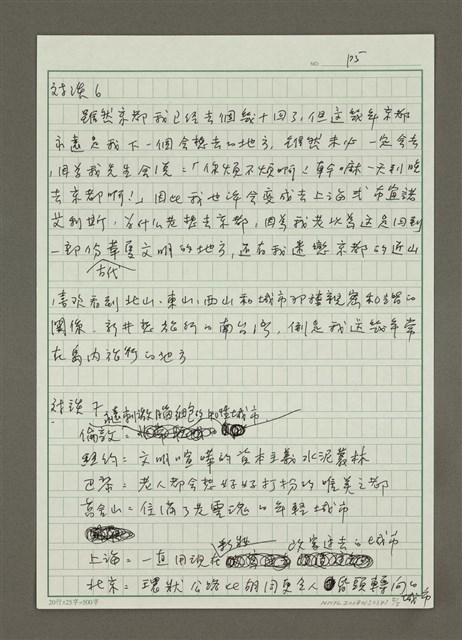 NO. P5
對談6
雖然京都我已經去個幾十回了，但這幾年京都
永遠是我下一個會想去的地方，雖然未必一定會去
，因為我先生會說：「你煩不煩啊！幹嘛一天到晚
去京都啊！」因此我也許會變成去上海或布宜諾
艾利斯，為什么老想去京都，因為我老以為這是回到
一部份華夏文明的地方，還有我迷戀京都的近山
古代
，喜歡看到北山、東山、西山和城市那種親密和諧的
關係。 的南台灣，倒是我這幾年常
在島內旅行的地方
對談7
倫敦：刺激腦細胞的知性城市
紐約：文明喧嘩的資本主義水泥叢林
巴黎：老人都會想好好打扮的唯美之都
舊金山：住滿了老靈魂的年輕城市
上海：一直用現在 改寫過去的城市
北京：環狀公路比胡同更令人昏頭轉向的城市
20行×25字=500字